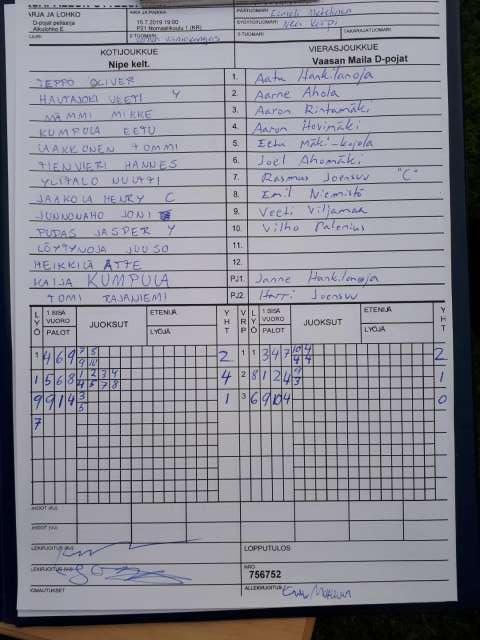 ARJA JA LOHKO
D-pojat pelisarja
Alkulohko E
AIKA JA PAIKKA
15.7.2019 19:00
P21 Normaalikoulu 1 (KR)
PÄÄTUOMARI
SYÖTTÖTUOMARI
2-TUOMARI
3-TUOMARI
TAKARAJATUOMARI
KOTIJOUKKUE
Nipe kelt.
VIERASJOUKKUE
Vaasan Maila D-pojat
JEPPO OLIVER 1. Aatu Hankilanoja
HAUTAJOKI VEETI Y 2. Aarne Ahola
MÄMMI MIKKE 3. Aaron Rintamäki
KUMPULA EETU 4. Aaron Hovimäki
LAAKKONEN TOMMI 5. Eetu Mäki-Kojola
TIENVIERI HANNES 6. Joel Ahomäki
YLITALO 7. Rasmus Joensuu "C"
JAAKOLA HENRY C 8. Emil Niemistö
JUNNONAHO JONI 9. Veeti Viljamaa
PUDAS JASPER Y 10. Vilho Palenius
LÖYTYNOJA JUUSO 11.
HEIKKILÄ ATTE 12.
KAIJA KUMPULA PJ1. Janne Hankilanoja
TOMI RAJANIEMI PJ2. Harri Joensuu
LYÖ 1 SISÄ VUORO PALOT JUOKSUT ETENIJÄ LYÖJÄ YHT VRP LYÖ 1 SISÄ VUORO PALOT JUOKSUT ETENIJÄ LYÖJÄ YHT
1 4 6 9 7 5 2 1 1 3 4 7 10 4 2
9 10 4 4
1 5 6 8 1 2 3 4 4 2 8 1 2 4 9 1
4 5 7 8 3
9 9 1 4 3 1 3 6 9 10 4 0
5
7
LOPPUTULOS
NRO
756752
HUOMAUTUKSET
ALLEKIRJOITUS